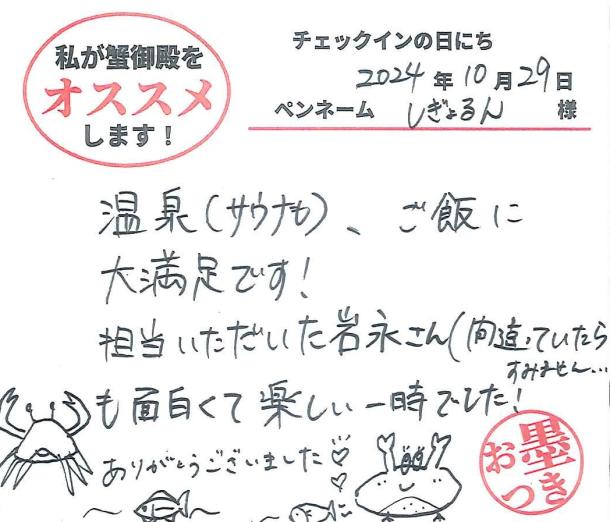 私が蟹御殿を
オススメ
します!
チェックインの日にち
2024年10月29日
ペンネーム しぎょるん 様
温泉(サウナも)、ご飯に
大満足です!
担当いただいた岩永さん(間違っていたら
すみません…
も面白くて楽しい一時でした!
ありがとうございました♡
お墨つき